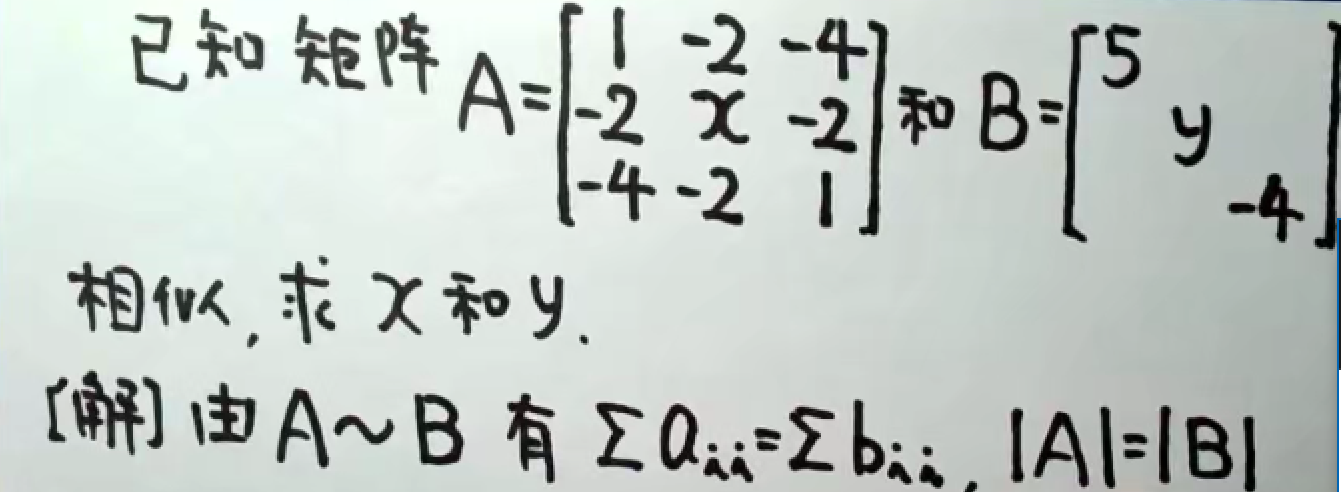 已知矩阵 A=[1 -2 -4; -2 x -2; -4 -2 1] 和 B=[5 y -4]
相似, 求 x 和 y.
[解] 由 A~B 有 Σaii=Σbii, |A|=|B|